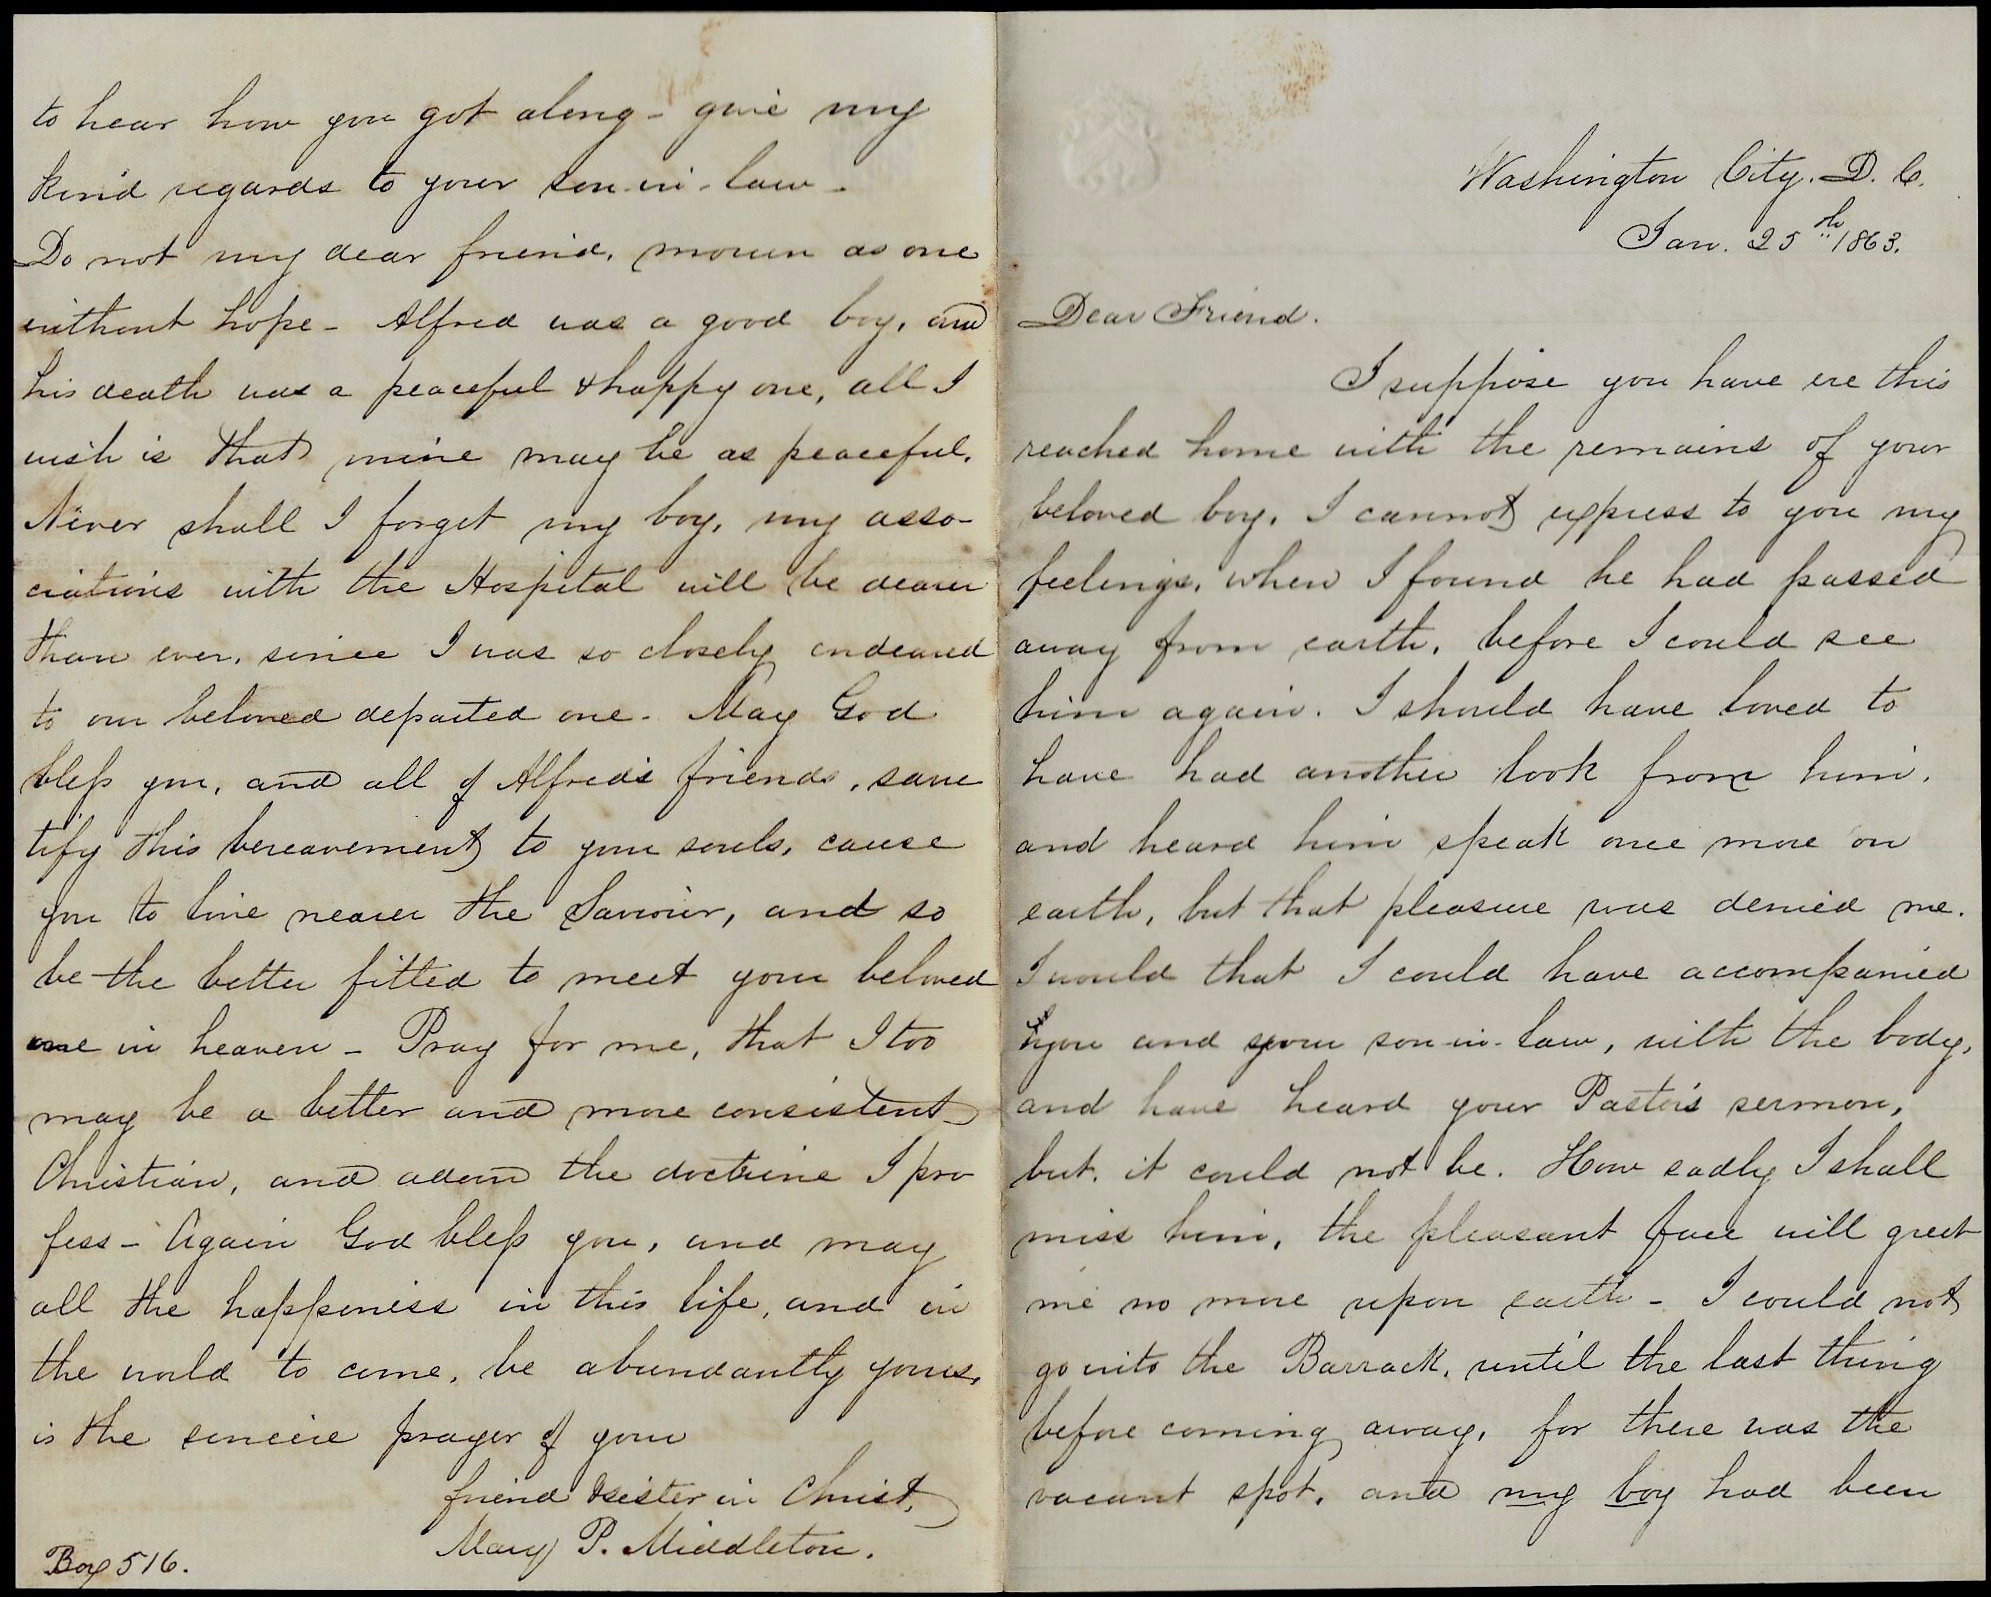 Washington City. D. C.
Jan. 25th 1863.
Dear Friend.
I suppose you have ere this
reached home with the remains of your
beloved boy. I cannot express to you my
feelings, when I found he had passed
away from earth, before I could see
him again. I should have loved to
have had another look from him,
and heard him speak once more on
earth, but that pleasure was denied me.
I would that I could have accompanied
you and your son-in-law, with the body,
and have heard your Pastor's sermon,
but, it could not be. How sadly I shall
miss him, the pleasant face will greet
me no more upon earth - I could not
go into the Barrack, until the last thing
before coming away, for there was the
vacant spot, and my boy had been
to hear how you got along - give my
kind regards to your son-in-law -
Do not my dear friend, mourn as one
without hope - Alfred was a good boy, and
his death was a peaceful & happy one, all I
wish is that mine may be as peaceful.
Never shall I forget my boy, my asso-
ciations with the Hospital will be dearer
than ever, since I was so closely endeared
to our beloved departed one - May God
bless you, and all of Alfred's friends, sanc
tify this bereavement to your souls, cause
you to live nearer the Saviour, and so
be the better fitted to meet your beloved
one in heaven - Pray for me, that I too
may be a better and more consistent
Christian, and adorn the doctrine I pro
fess - Again God bless you, and may
all the happiness in this life, and in
the world to come, be abundantly yours,
is the sincere prayer of your
friend & sister in Christ,
Mary P. Middleton.
Box 516.